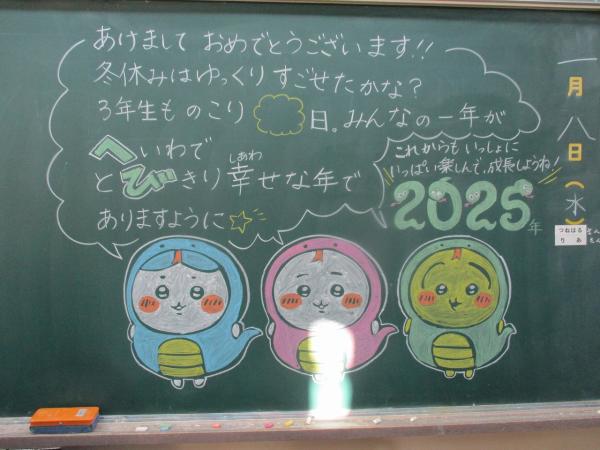 あけまして おめでとうございます!!
冬休みはゆっくりすごせたかな?
3年生ものこり　　日。みんなの一年が
へいわで
とびきり幸せな年で
しあわ
ありますように☆
これからもいっしょに
いっぱい楽しんで、成長しようね!
2025年
一月八日(水)
つねはる
りあ
さん